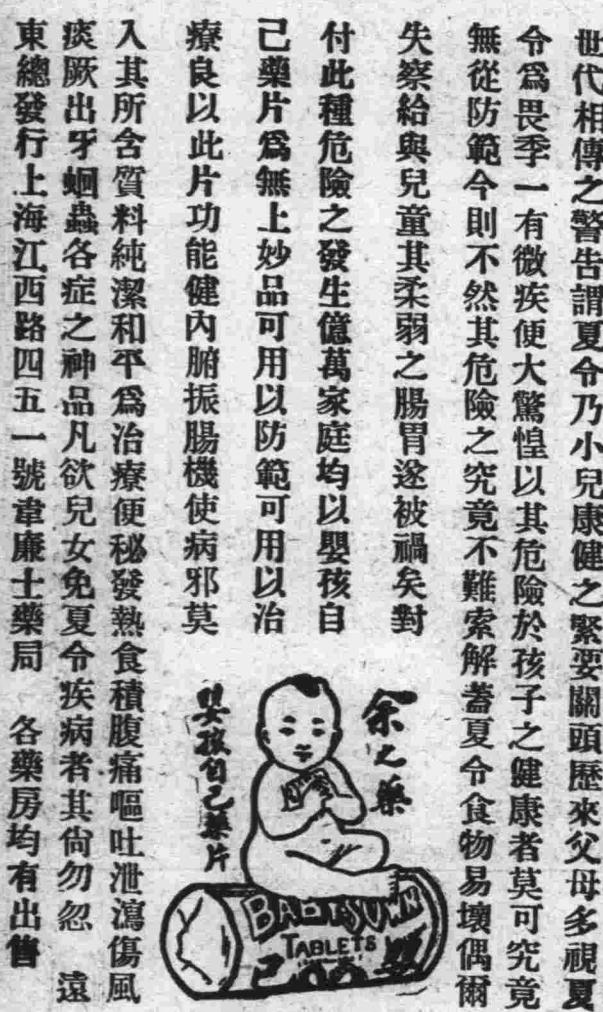 世代相傳之警吿謂夏令乃小兒康健之緊要關頭歷來父母多視夏
令爲畏季一有微疾便大驚惶以其危險於孩子之健康者莫可究竟
無從防範今則不然其危險之究竟不難索解蓋夏令食物易壞偶爾
失察給與兒童其柔弱之腸胃遂被禍矣對
付此種危險之發生億萬家庭均以嬰孩自
己藥片爲無上妙品可用以防範可用以治
療良以此片功能健內腑振腸機使病邪莫
入其所含質料純潔和平爲治療便秘發熱食積腹痛嘔吐泄瀉傷風
痰厥出牙蛔蟲各症之神品凡欲兒女免夏令疾病者其尙勿忽 遠
東總發行上海江西路四五一號韋廉士藥局 各藥房均有出售
余之藥
嬰孩自己藥片
BABY'S OWN
TABLETS